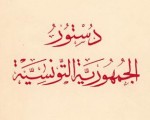 دُسْتُور
الجُمْهُورِيَّة التُّونِسِيَّة